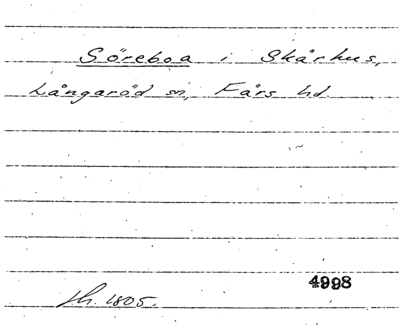 Söreboa i Skårhus,
Långaröd sn, Färs hd.
4998
sh. 1805.